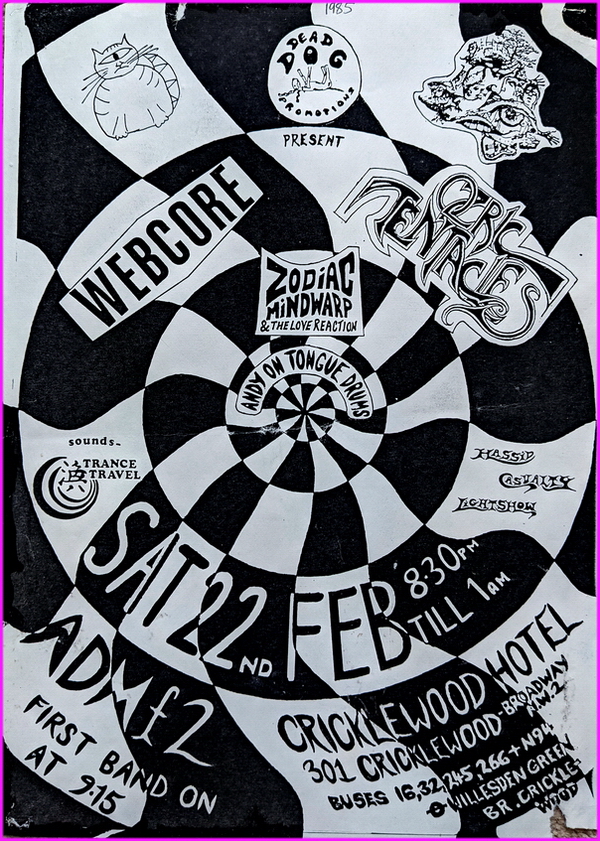 1985
DEAD
DOG
PROMOTIONS
PRESENT
WEBCORE
OZRIC
TENTACLES
ZODIAC
MINDWARP
& THE LOVE REACTION
ANDY ON TONGUE DRUMS
sounds-
TRANCE
TRAVEL
HASSID
CASUALTY
LIGHTSHOW
SAT 22ND FEB
8·30PM
TILL 1AM
ADM £2
FIRST BAND ON
AT 9.15
CRICKLEWOOD HOTEL
301 CRICKLEWOOD BROADWAY
N.W.2
BUSES 16, 32, 245, 266 + N94
WILLESDEN GREEN
BR. CRICKLE-
WOOD